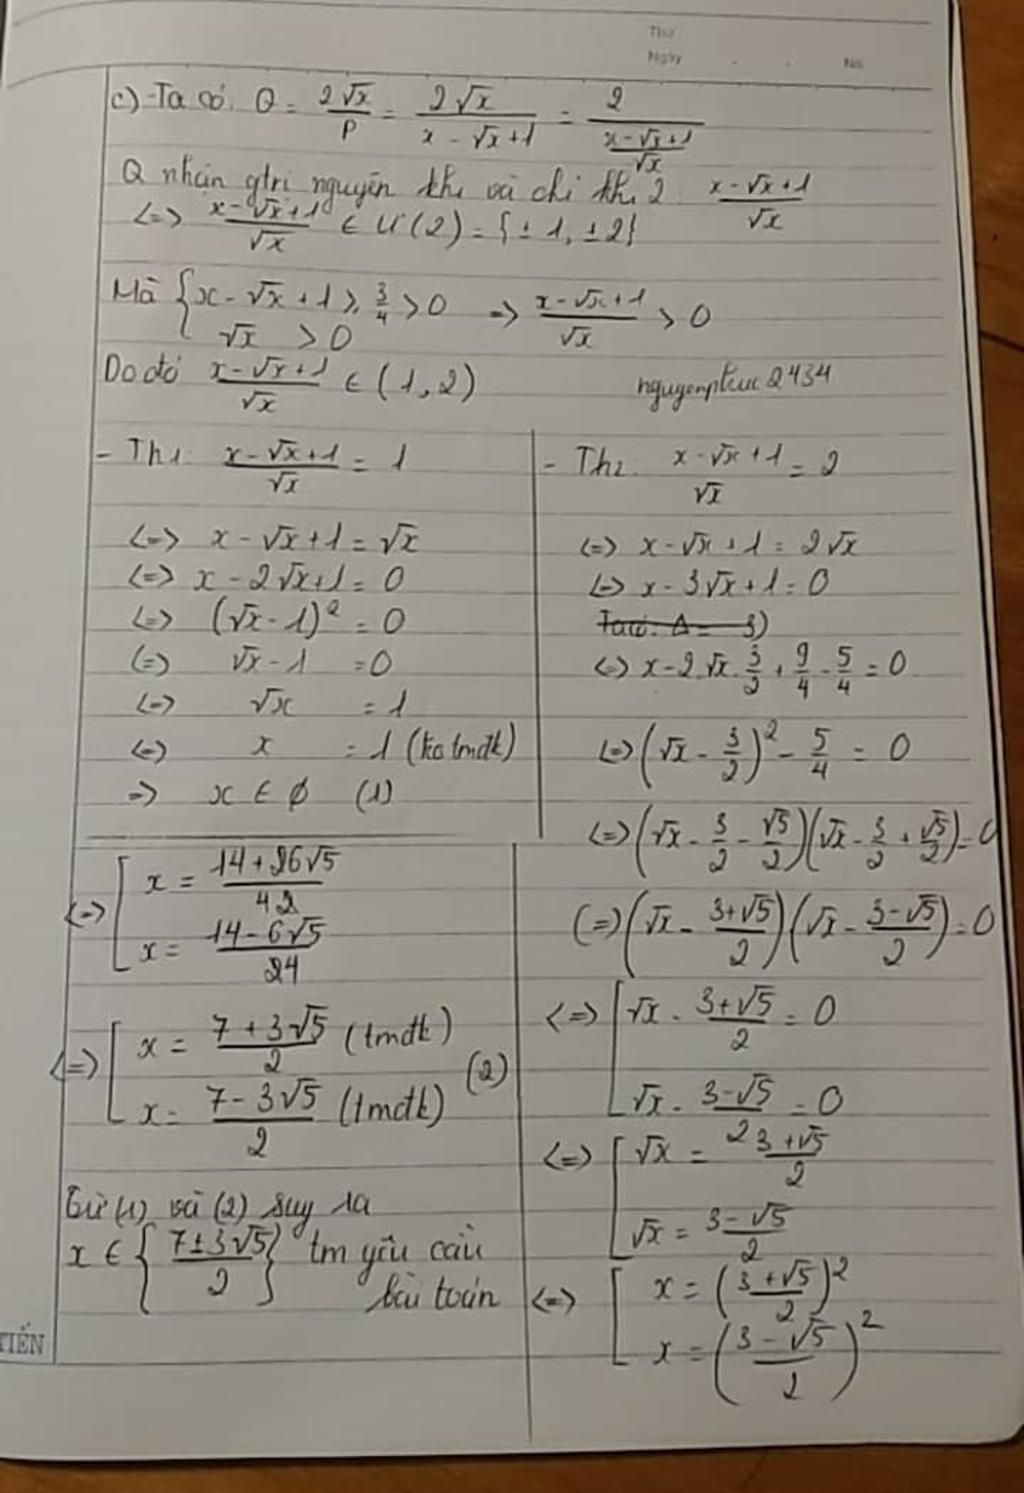 Thứ
Ngày . . No
c) - Ta có: Q = 2√x/P = 2√x/(x - √x + 1) = 2/((x - √x + 1)/√x)
Q nhận gtrị nguyên khi và chỉ khi 2 ⋮ (x - √x + 1)/√x
<=> (x - √x + 1)/√x ∈ Ư(2) = {±1, ±2}
Mà { x - √x + 1 ≥ 3/4 > 0 => (x - √x + 1)/√x > 0
√x > 0
Do đó (x - √x + 1)/√x ∈ (1, 2) nguyenphuc2434
- Th1: (x - √x + 1)/√x = 1
<=> x - √x + 1 = √x
<=> x - 2√x + 1 = 0
<=> (√x - 1)² = 0
<=> √x - 1 = 0
<=> √x = 1
<=> x = 1 (ko tmđk)
=> x ∈ ∅ (1)
- Th2: (x - √x + 1)/√x = 2
<=> x - √x + 1 = 2√x
<=> x - 3√x + 1 = 0
Ta có: Δ = 3)
<=> x - 2.√x.3/2 + 9/4 - 5/4 = 0
<=> (√x - 3/2)² - 5/4 = 0
<=> (√x - 3/2 - √5/2)(√x - 3/2 + √5/2) = 0
<=> (√x - (3+√5)/2)(√x - (3-√5)/2) = 0
<=> [ √x - (3+√5)/2 = 0
√x - (3-√5)/2 = 0
<=> [ √x = (3+√5)/2
√x = (3-√5)/2
<=> [ x = ((3+√5)/2)²
x = ((3-√5)/2)²
<=> [ x = (14+6√5)/4
x = (14-6√5)/4
<=> [ x = (7+3√5)/2 (tmđk)
x = (7-3√5)/2 (tmđk) (2)
Từ (1) và (2) suy ra
x ∈ {(7±3√5)/2} tm yêu cầu
bài toán
TIẾN